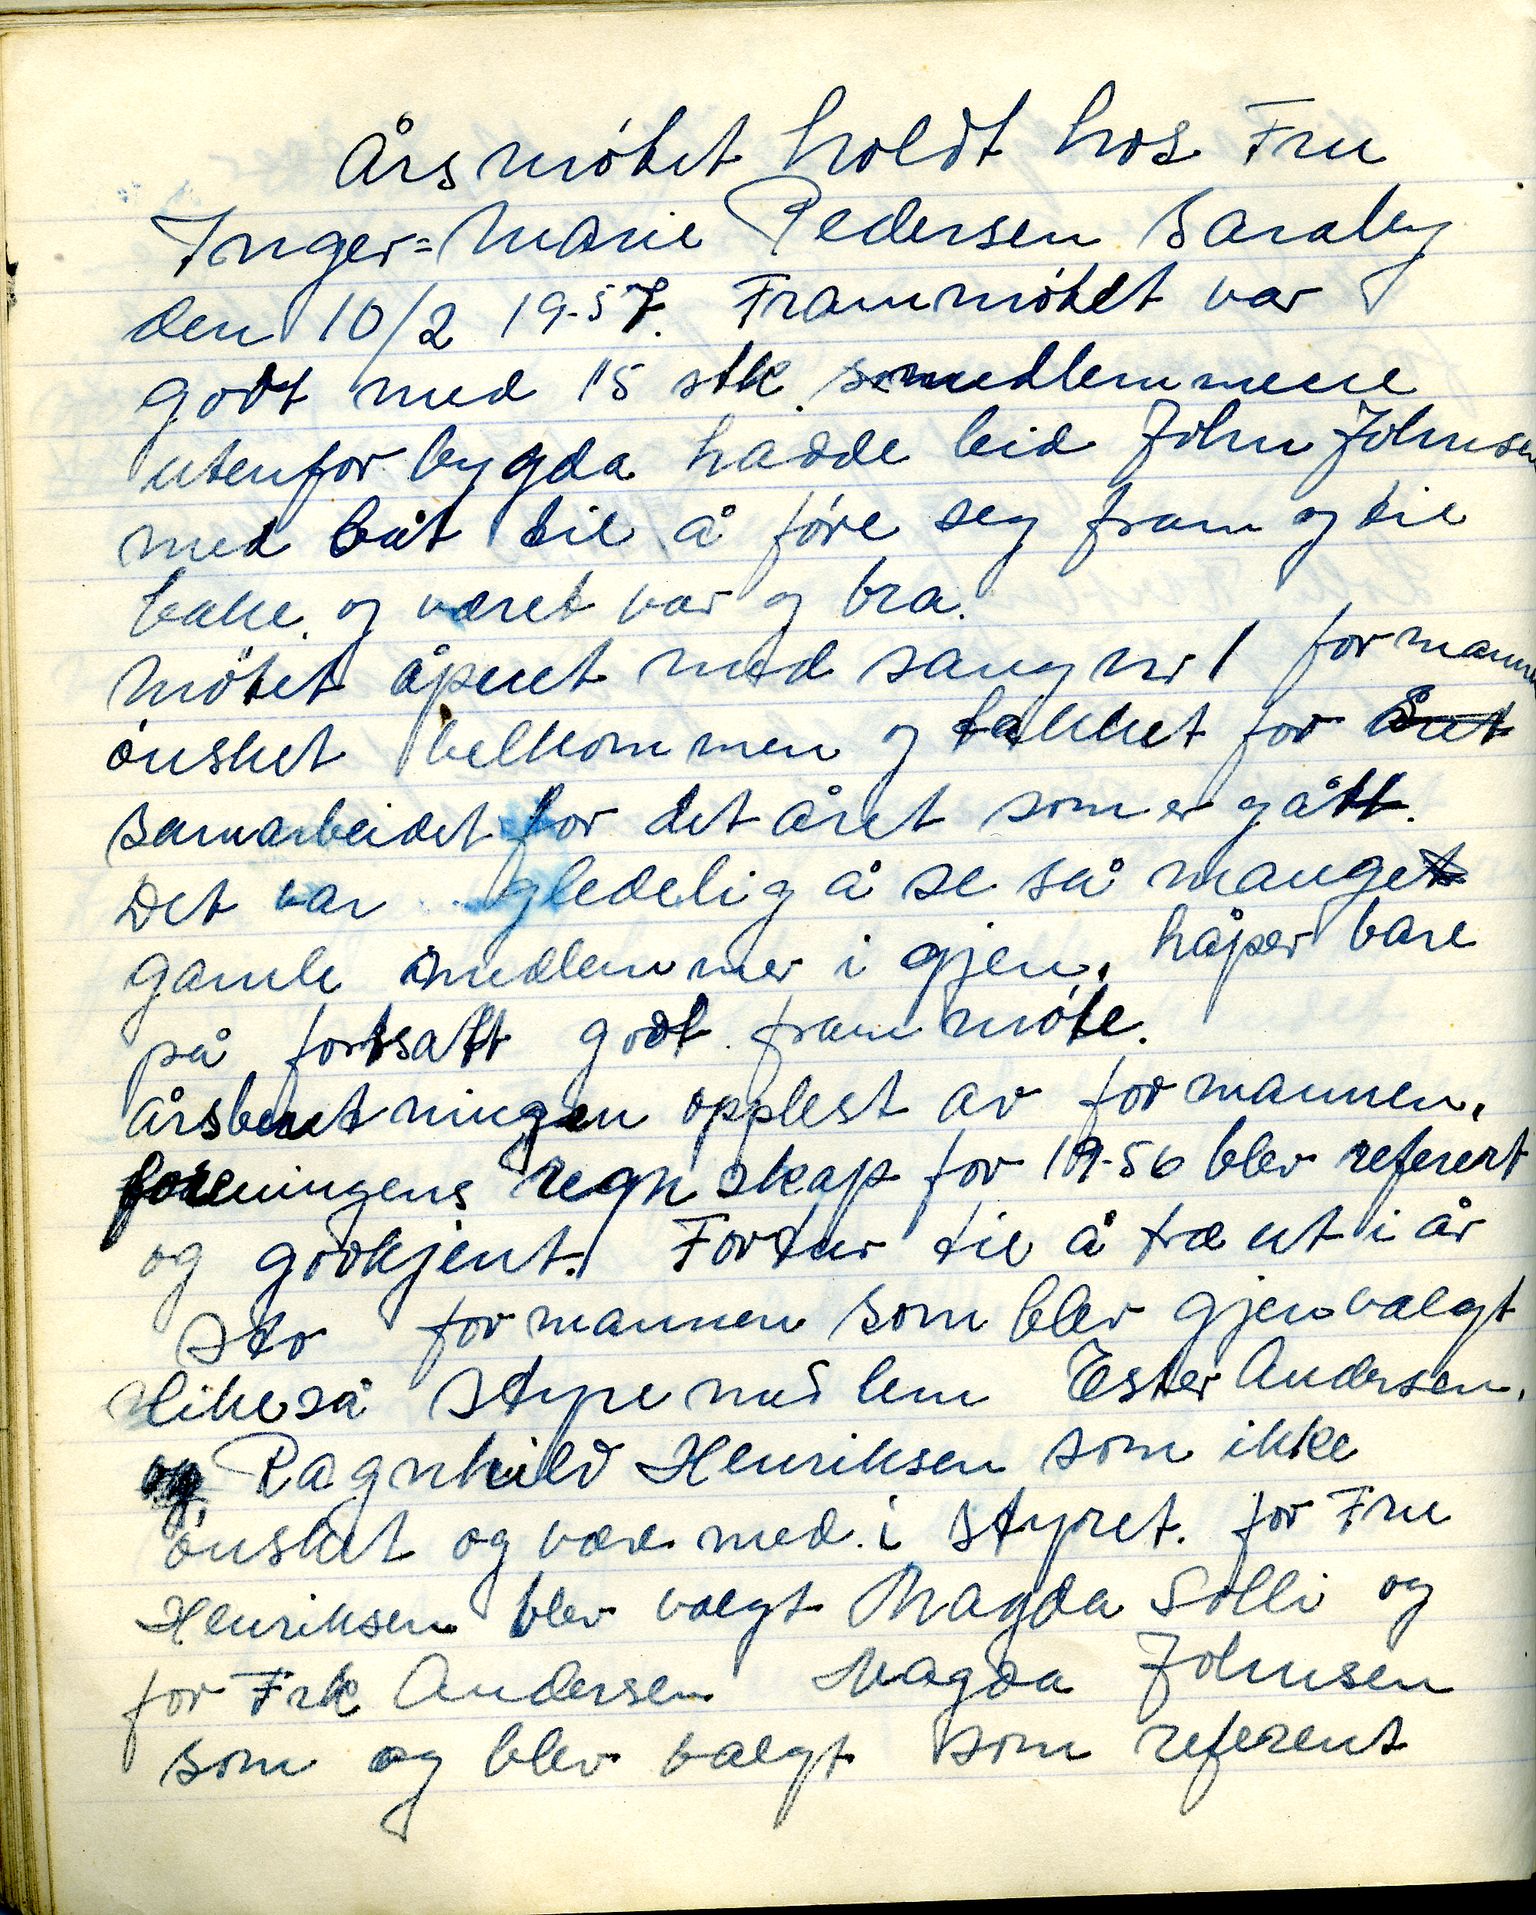 Årsmötet holdt hos Fru
Inger=Marie Pedersen Saraby
den 10/2 19-57. Frammötet var
godt med 15 stk. medlemmene
utenfor bygda hadde leid John Johnsen
med båt til å före seg fram og til
bake. og været var og bra.
Mötet åpnet med sang nr 1 formannen
önsket velkommen og takket for året
samarbeidet for det året som er gått.
Det var gledelig å se så mange
gamle medlemmer i gjen, håper bare
på fortsatt godt frammöte.
Årsberetningen opplest av formannen.
foreningens regnskap for 19-56 blev referert
og godkjent. Fortur til å træ ut i år
sto formannen som blev gjenvalgt
likeså styremedlem Ester Andersen.
og Ragnhild Henriksen som ikke
önsket og være med i styret. for Fru
Henriksen blev valgt Magda Solli og
for Frk Andersen Magda Johnsen
som og blev valgt som referent